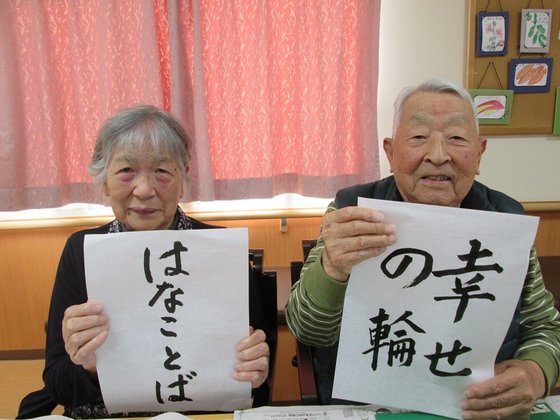 はなことば
幸せ
の輪